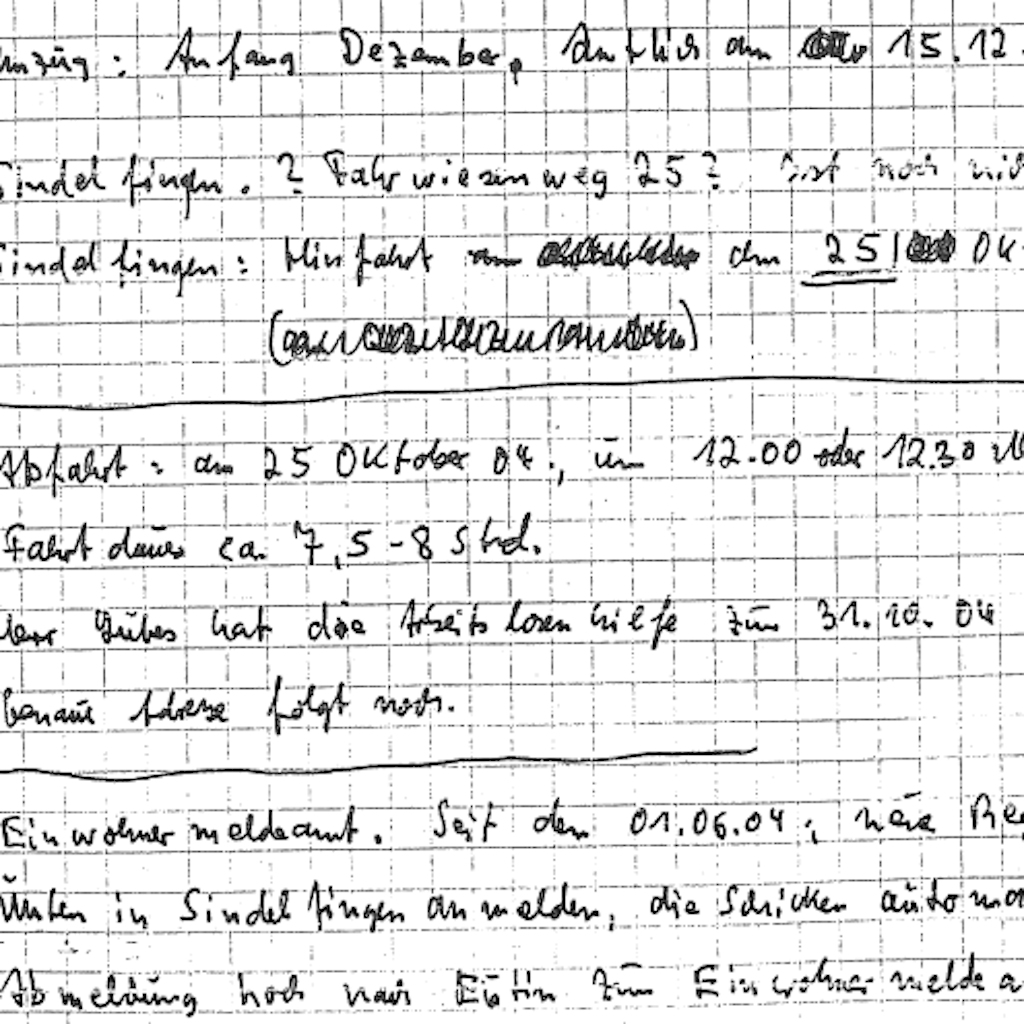 Umzug: Anfang Dezember, Amtlich am 15.12.
Sindelfingen. ? Fahrwiesenweg 25? Ist noch nich
Sindelfingen: Hinfahrt den 25 Ok
Abfahrt: am 25 Oktober 04., um 12.00 oder 12.30 U
Fahrt dauer ca. 7,5-8 Std.
hat die Arbeitslosenhilfe zum 31.10.04
Genaue Adresse folgt noch.
Einwohnermeldeamt. Seit dem 01.06.04; neue Re
Unten in Sindelfingen anmelden, die Schicken automa
Abmeldung hoch nach Eutin zum Einwohnermeldea